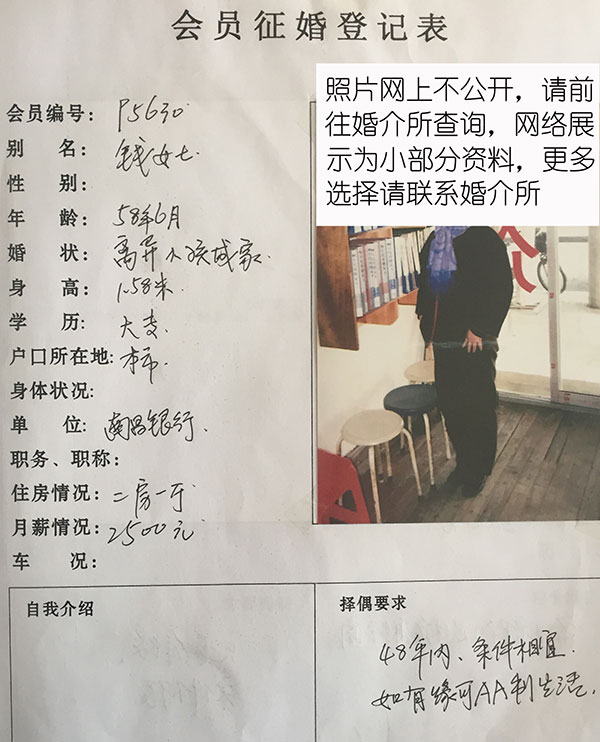 会员征婚登记表
照片网上不公开，请前
往婚介所查询，网络展
示为小部分资料，更多
选择请联系婚介所
会员编号：P5630
别 名：钱女士
性 别：
年 龄：58年6月
婚 状：离异小孩成家
身 高：1.58米
学 历：大专
户口所在地:本市
身体状况:
单 位:南昌银行
职务、职称：
住房情况：二房一厅
月薪情况：2500元
车 况：
自我介绍
择偶要求
48年内、条件相宜
如有缘可AA制生活